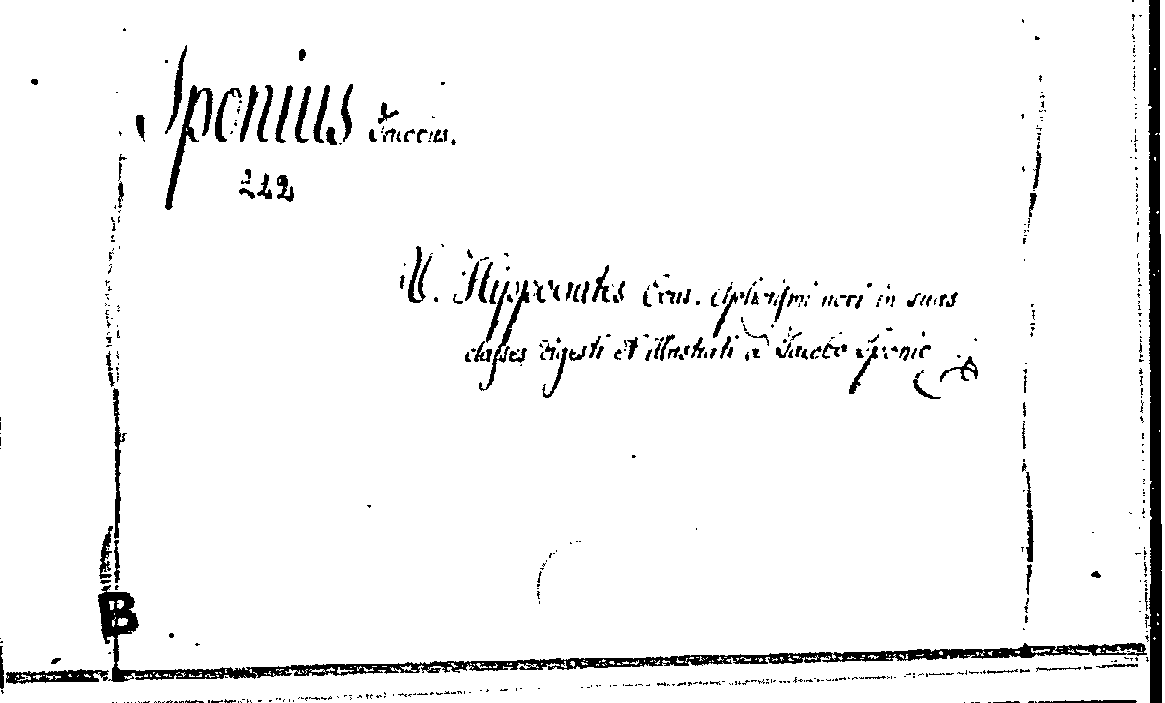 Sponius Jacobus.
222
V. Hippocrates Cous. Aphorismi novi in suas
classes digesti et illustrati a Jacobo Sponio
B